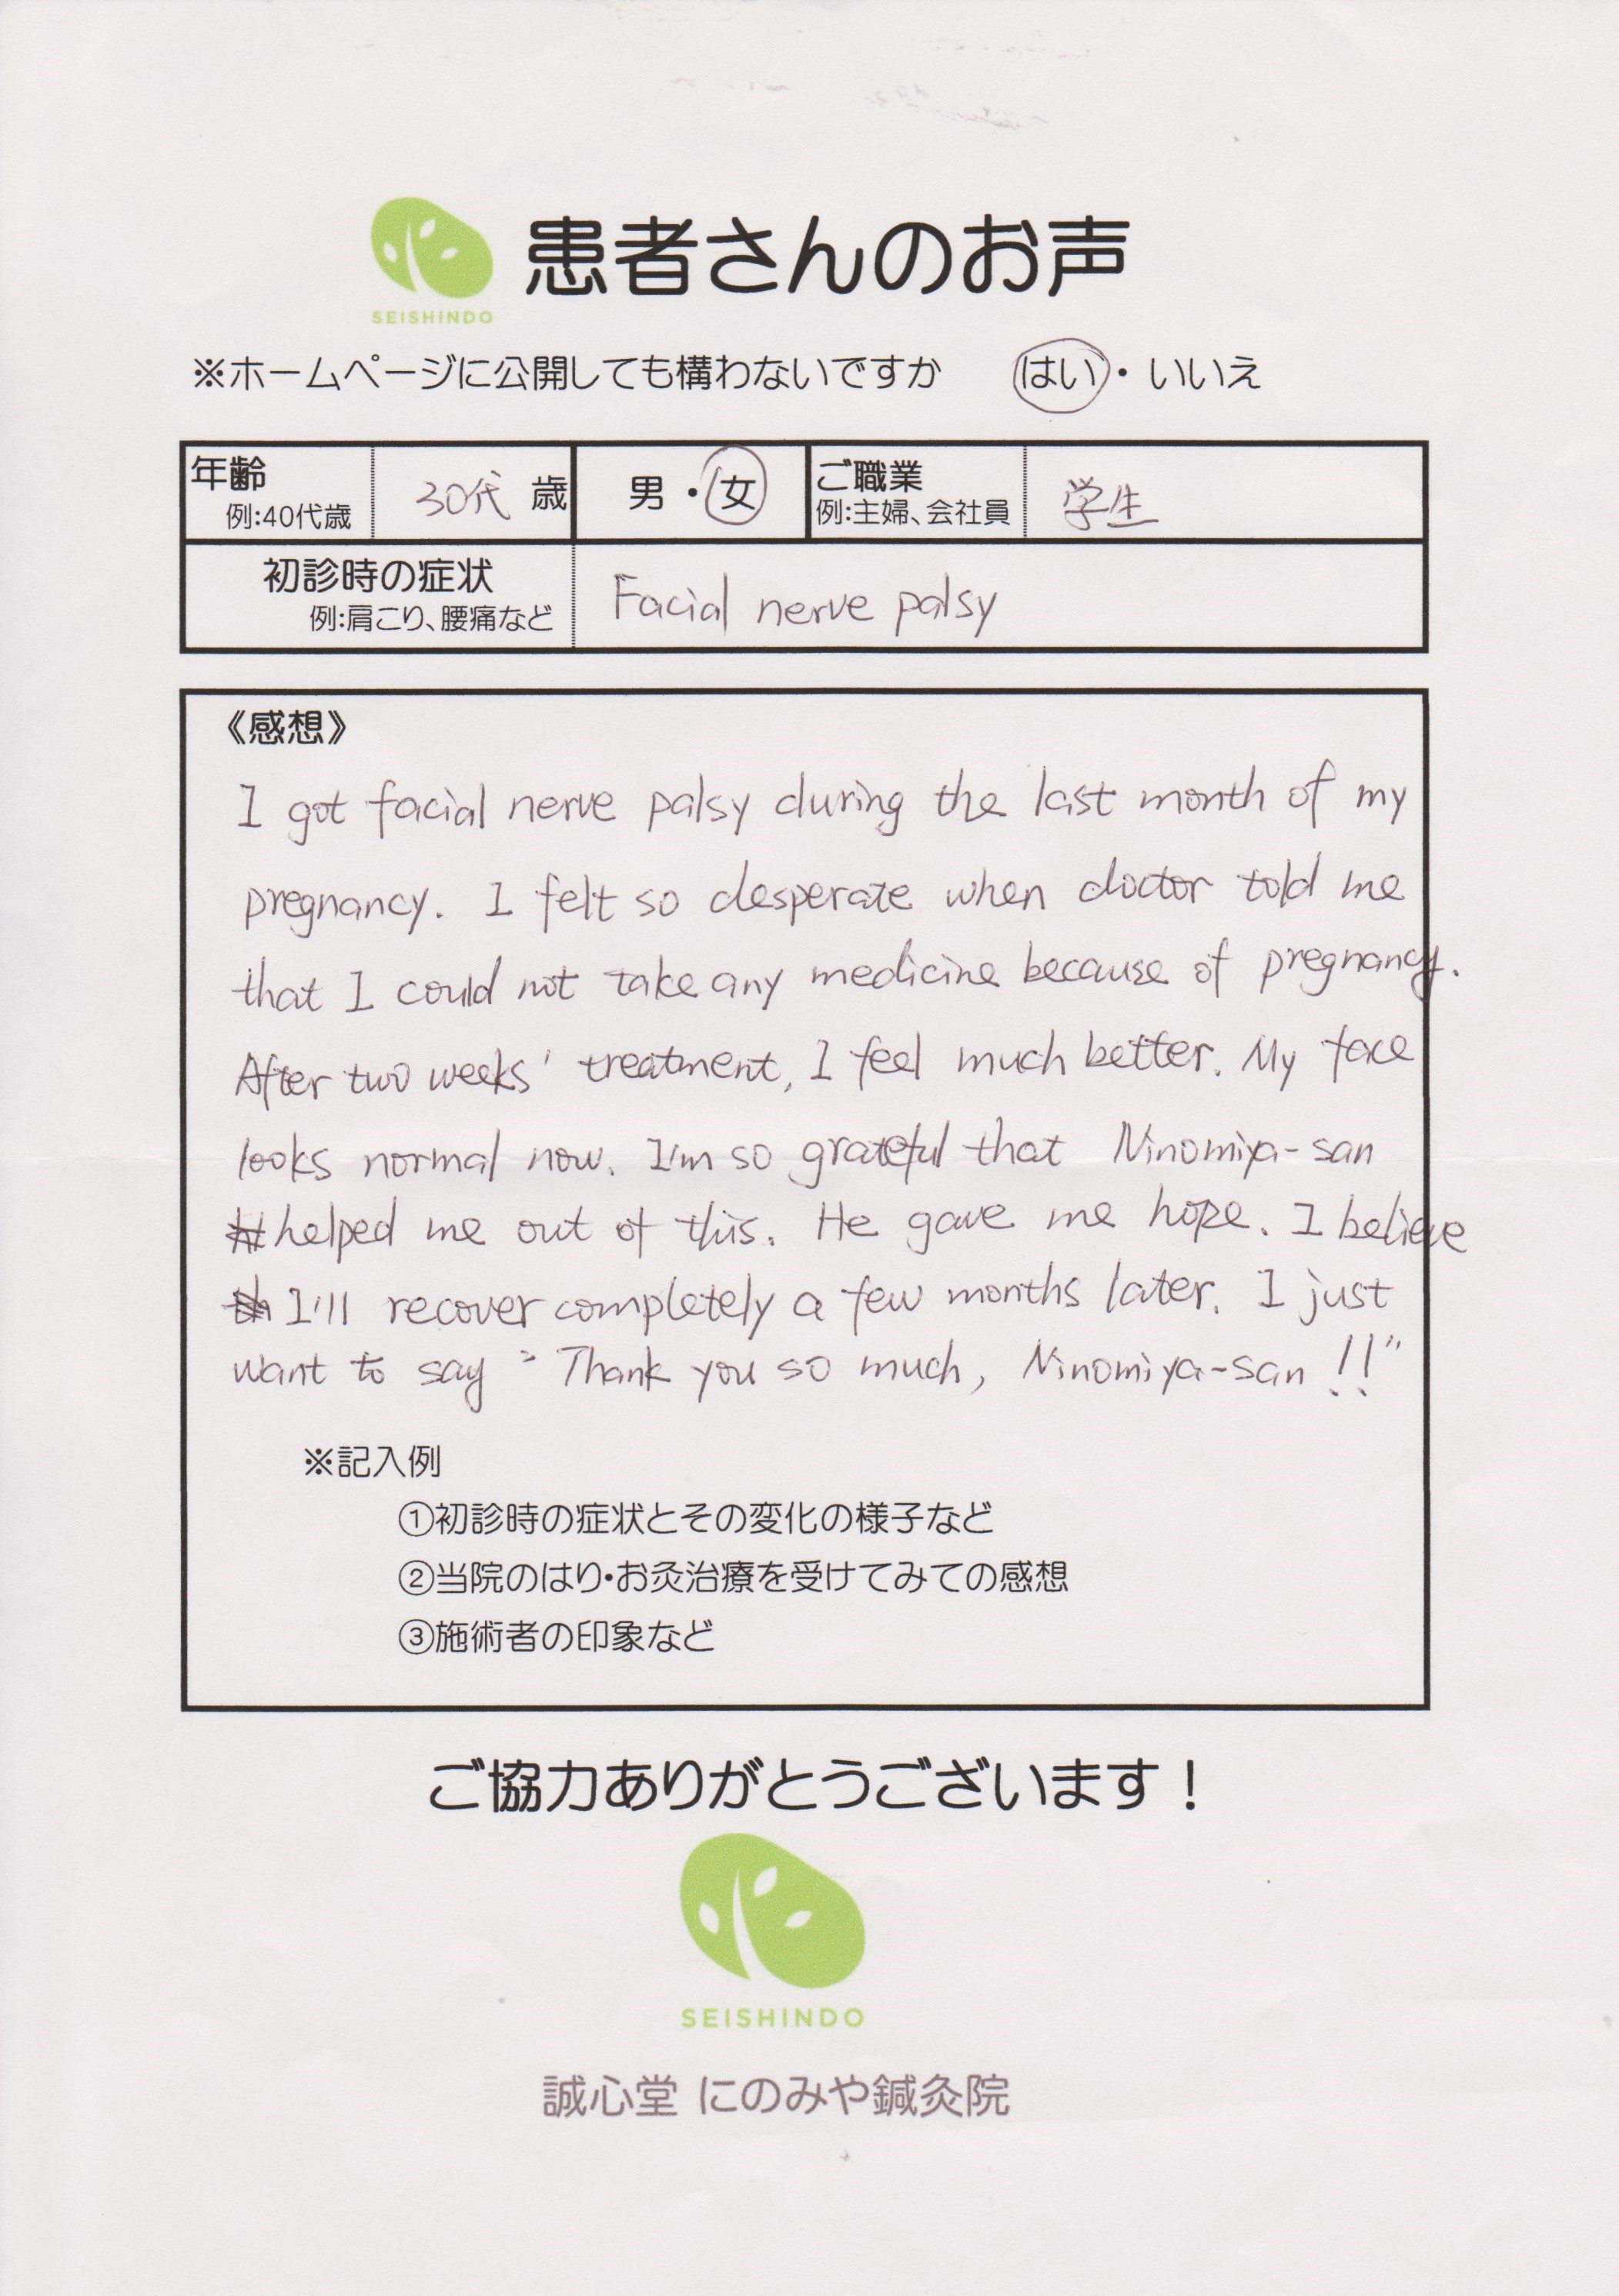 SEISHINDO
患者さんのお声
※ホームページに公開しても構わないですか はい・いいえ
年齢 30代 歳 男・女 ご職業 学生
例:40代歳 例:主婦、会社員
初診時の症状 Facial nerve palsy
例:肩こり、腰痛など
《感想》
I got facial nerve palsy during the last month of my
pregnancy. I felt so desperate when doctor told me
that I could not take any medicine because of pregnancy.
After two weeks' treatment, I feel much better. My face
looks normal now. I'm so grateful that Ninomiya-san
helped me out of this. He gave me hope. I believe
I'll recover completely a few months later. I just
want to say "Thank you so much, Ninomiya-san!!"
※記入例
①初診時の症状とその変化の様子など
②当院のはり・お灸治療を受けてみての感想
③施術者の印象など
ご協力ありがとうございます！
SEISHINDO
誠心堂 にのみや鍼灸院